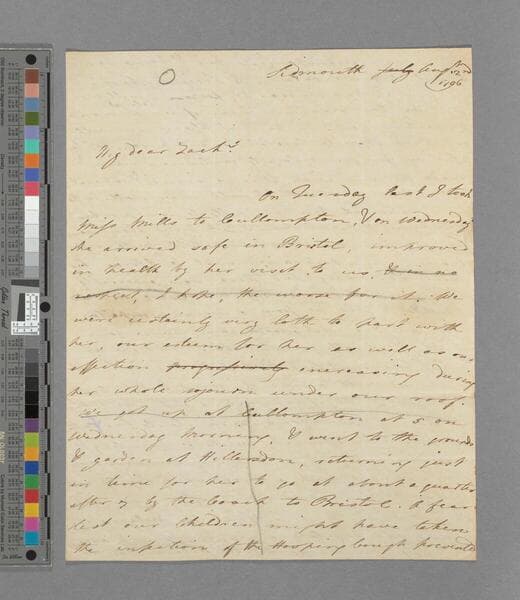 Sidmouth July Augst 2nd
1796
My dear Zachy
On Tuesday last I took
Miss Mills to Cullompton, & on Wednesday
she arrived safe in Bristol, improved
in health by her visit to us, & in no
I hope, the worse for it. We
were certainly very loth to part with
her, our esteem for her as well as our
affection progressively increasing during
her whole sojourn under our roof.
We got up at Cullompton at 5 on
Wednesday morning, & went to the grounds
& garden at Hillersdon, returning just
in time for her to go at about a quarter
after 7 by the Coach to Bristol. A fear
lest our Children might have taken
the infection of the Hooping Cough prevented